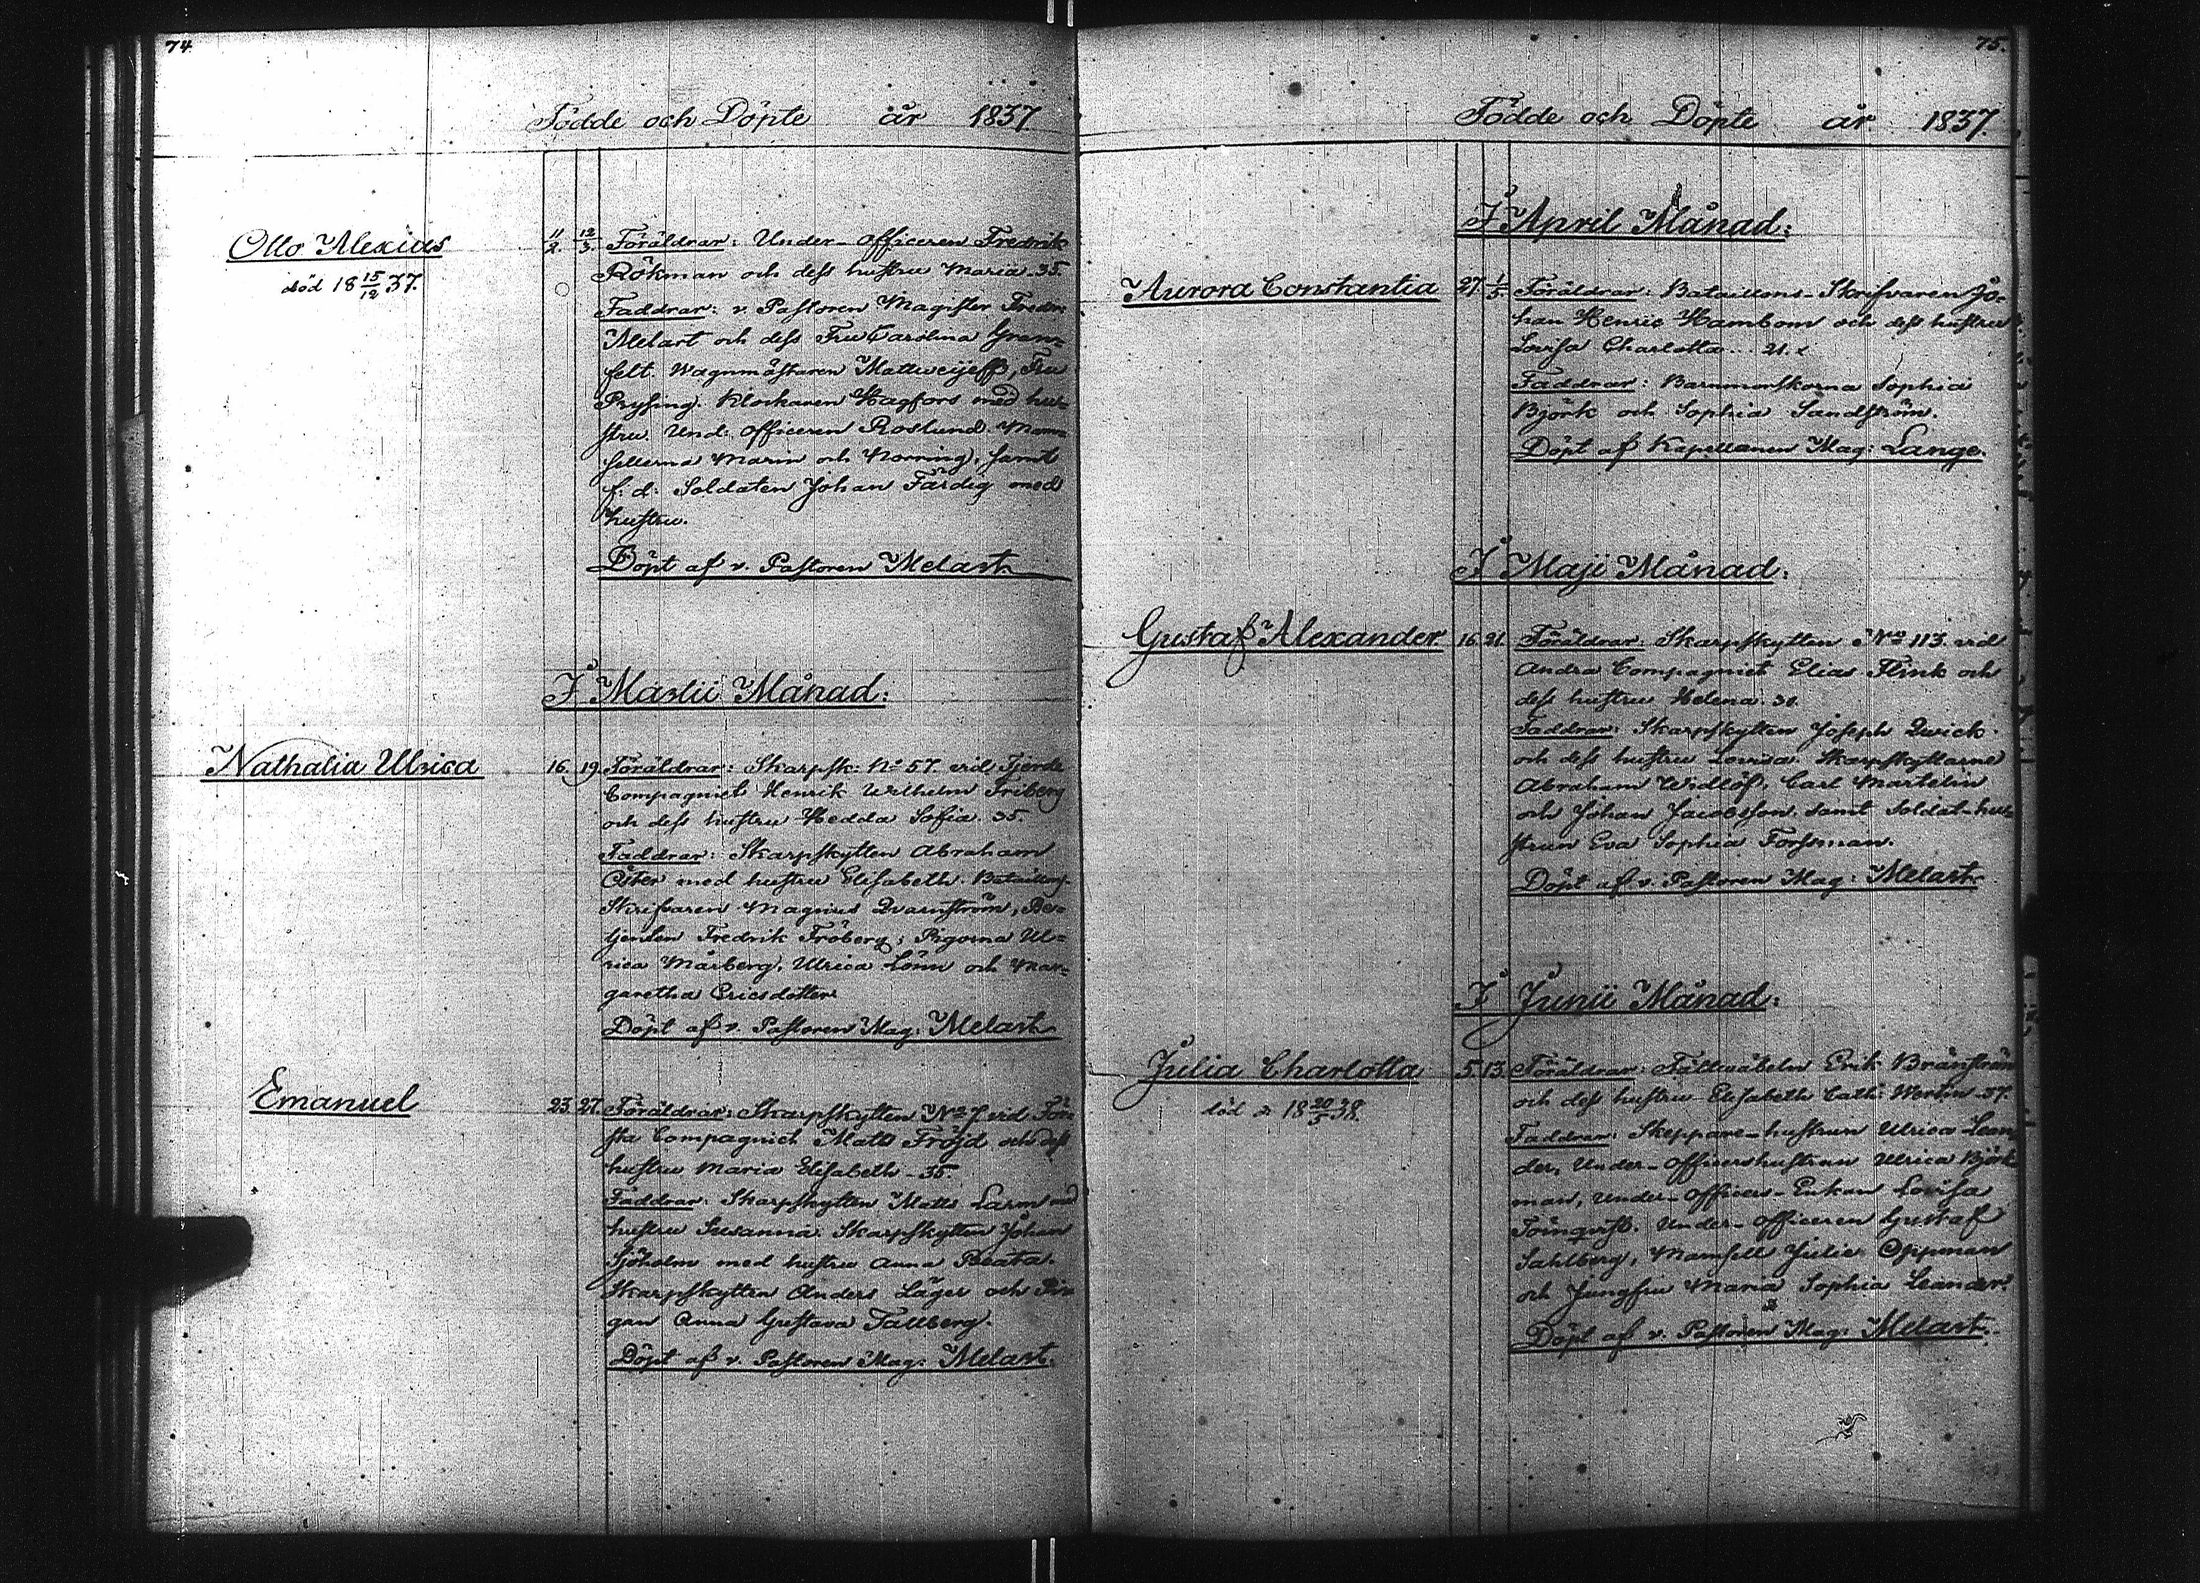 74.
Födde och Döpte år 1837.
Otto Alexius
död 18 15/12 37.
11/2. 12/3. Föräldrar: Under-officeren Fredrik
Rökman och dess hustru Maria. 35.
Faddrar: v. Pastoren Magister Fredr:
Melart och dess Fru Carolina Gran=
felt. Wagnmästaren Mattweijeff, Fru
Prysing. Klockaren Hagfors med hu=
stru. Und: officeren Roslund. Mam=
sellerna Marin och Norring, samt
f: d: Soldaten Johan Färdig med
hustru.
Döpt af v. Pastoren Melart.
I Martii Månad:
Nathalia Ulrica
16. 19. Föräldrar: Skarpsk: No 57. vid Fjerde
Compagniet Henrik Wilhelm Friberg
och dess hustru Hedda Sofia. 35.
Faddrar: Skarpskytten Abraham
Öster med hustru Elisabeth. Bataillons-
Skrifvaren Magnus Qvarnström, Be=
tjenten Fredrik Fröberg; Pigorna Ul=
rica Mårberg, Ulrica Lönn och Mar=
garetha Ericsdotter.
Döpt af v. Pastoren Mag: Melart.
Emanuel
23. 27. Föräldrar: Skarpskytten No 7. vid För=
sta Compagniet Matts Fröjd och dess
hustru Maria Elisabeth. 35.
Faddrar: Skarpskytten Matts Larm med
hustru Susanna. Skarpskytten Johan
Sjöholm med hustru Anna Beata.
Skarpskytten Anders Läger och Pi=
gan Anna Gustava Tallberg.
Döpt af v. Pastoren Mag: Melart.
75.
Födde och Döpte år 1837.
I April Månad:
Aurora Constantia
27. 1/5. Föräldrar: Bataillons-Skrifvaren Jo=
han Henric Hambom och dess hustru
Lovisa Charlotta. 21.
Faddrar: Barnmorskorna Sophia
Björk och Sophia Sandström.
Döpt af Kapellanen Mag: Lange.
I Maji Månad:
Gustaf Alexander
16. 21. Föräldrar: Skarpskytten No 113. vid
Andra Compagniet Elias Flink och
dess hustru Helena. 30.
Faddrar: Skarpskytten Joseph Qwick
och dess hustru Lovisa. Skarpskyttarne
Abraham Widlöf, Carl Martelin
och Johan Jacobsson, samt Soldat-hu=
strun Eva Sophia Forssman.
Döpt af v. Pastoren Mag: Melart.
I Junii Månad:
Julia Charlotta
död 18 20/5 38.
5. 13. Föräldrar: Fältwäbeln Erik Brånström
och dess hustru Elisabeth Cath: Wertin. 37.
Faddrar: Skeppare-hustrun Ulrica Lean=
der, Under-officershustrun Ulrica Björk=
man, Under-officers-Enkan Lovisa
Törnqvist. Under-officeren Gustaf
Sahlberg, Mamsell Julie Oppman
och Jungfru Maria Sophia Leander.
Döpt af v. Pastoren Mag: Melart.